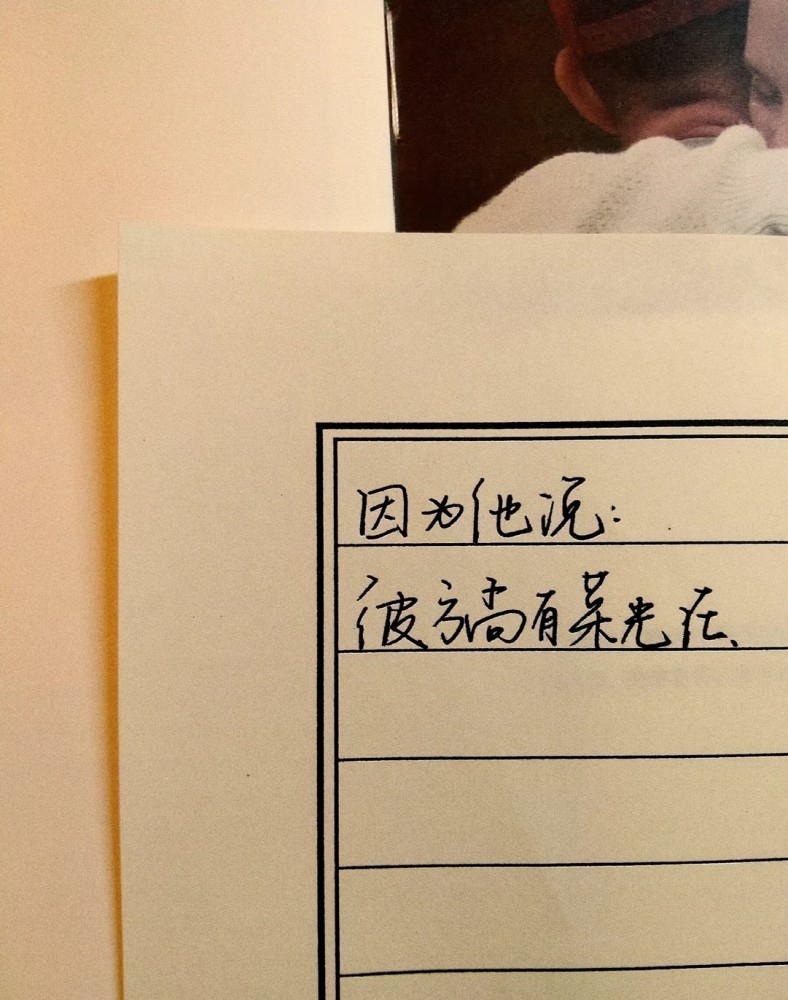 因为他说:
彼方尚有荣光在、